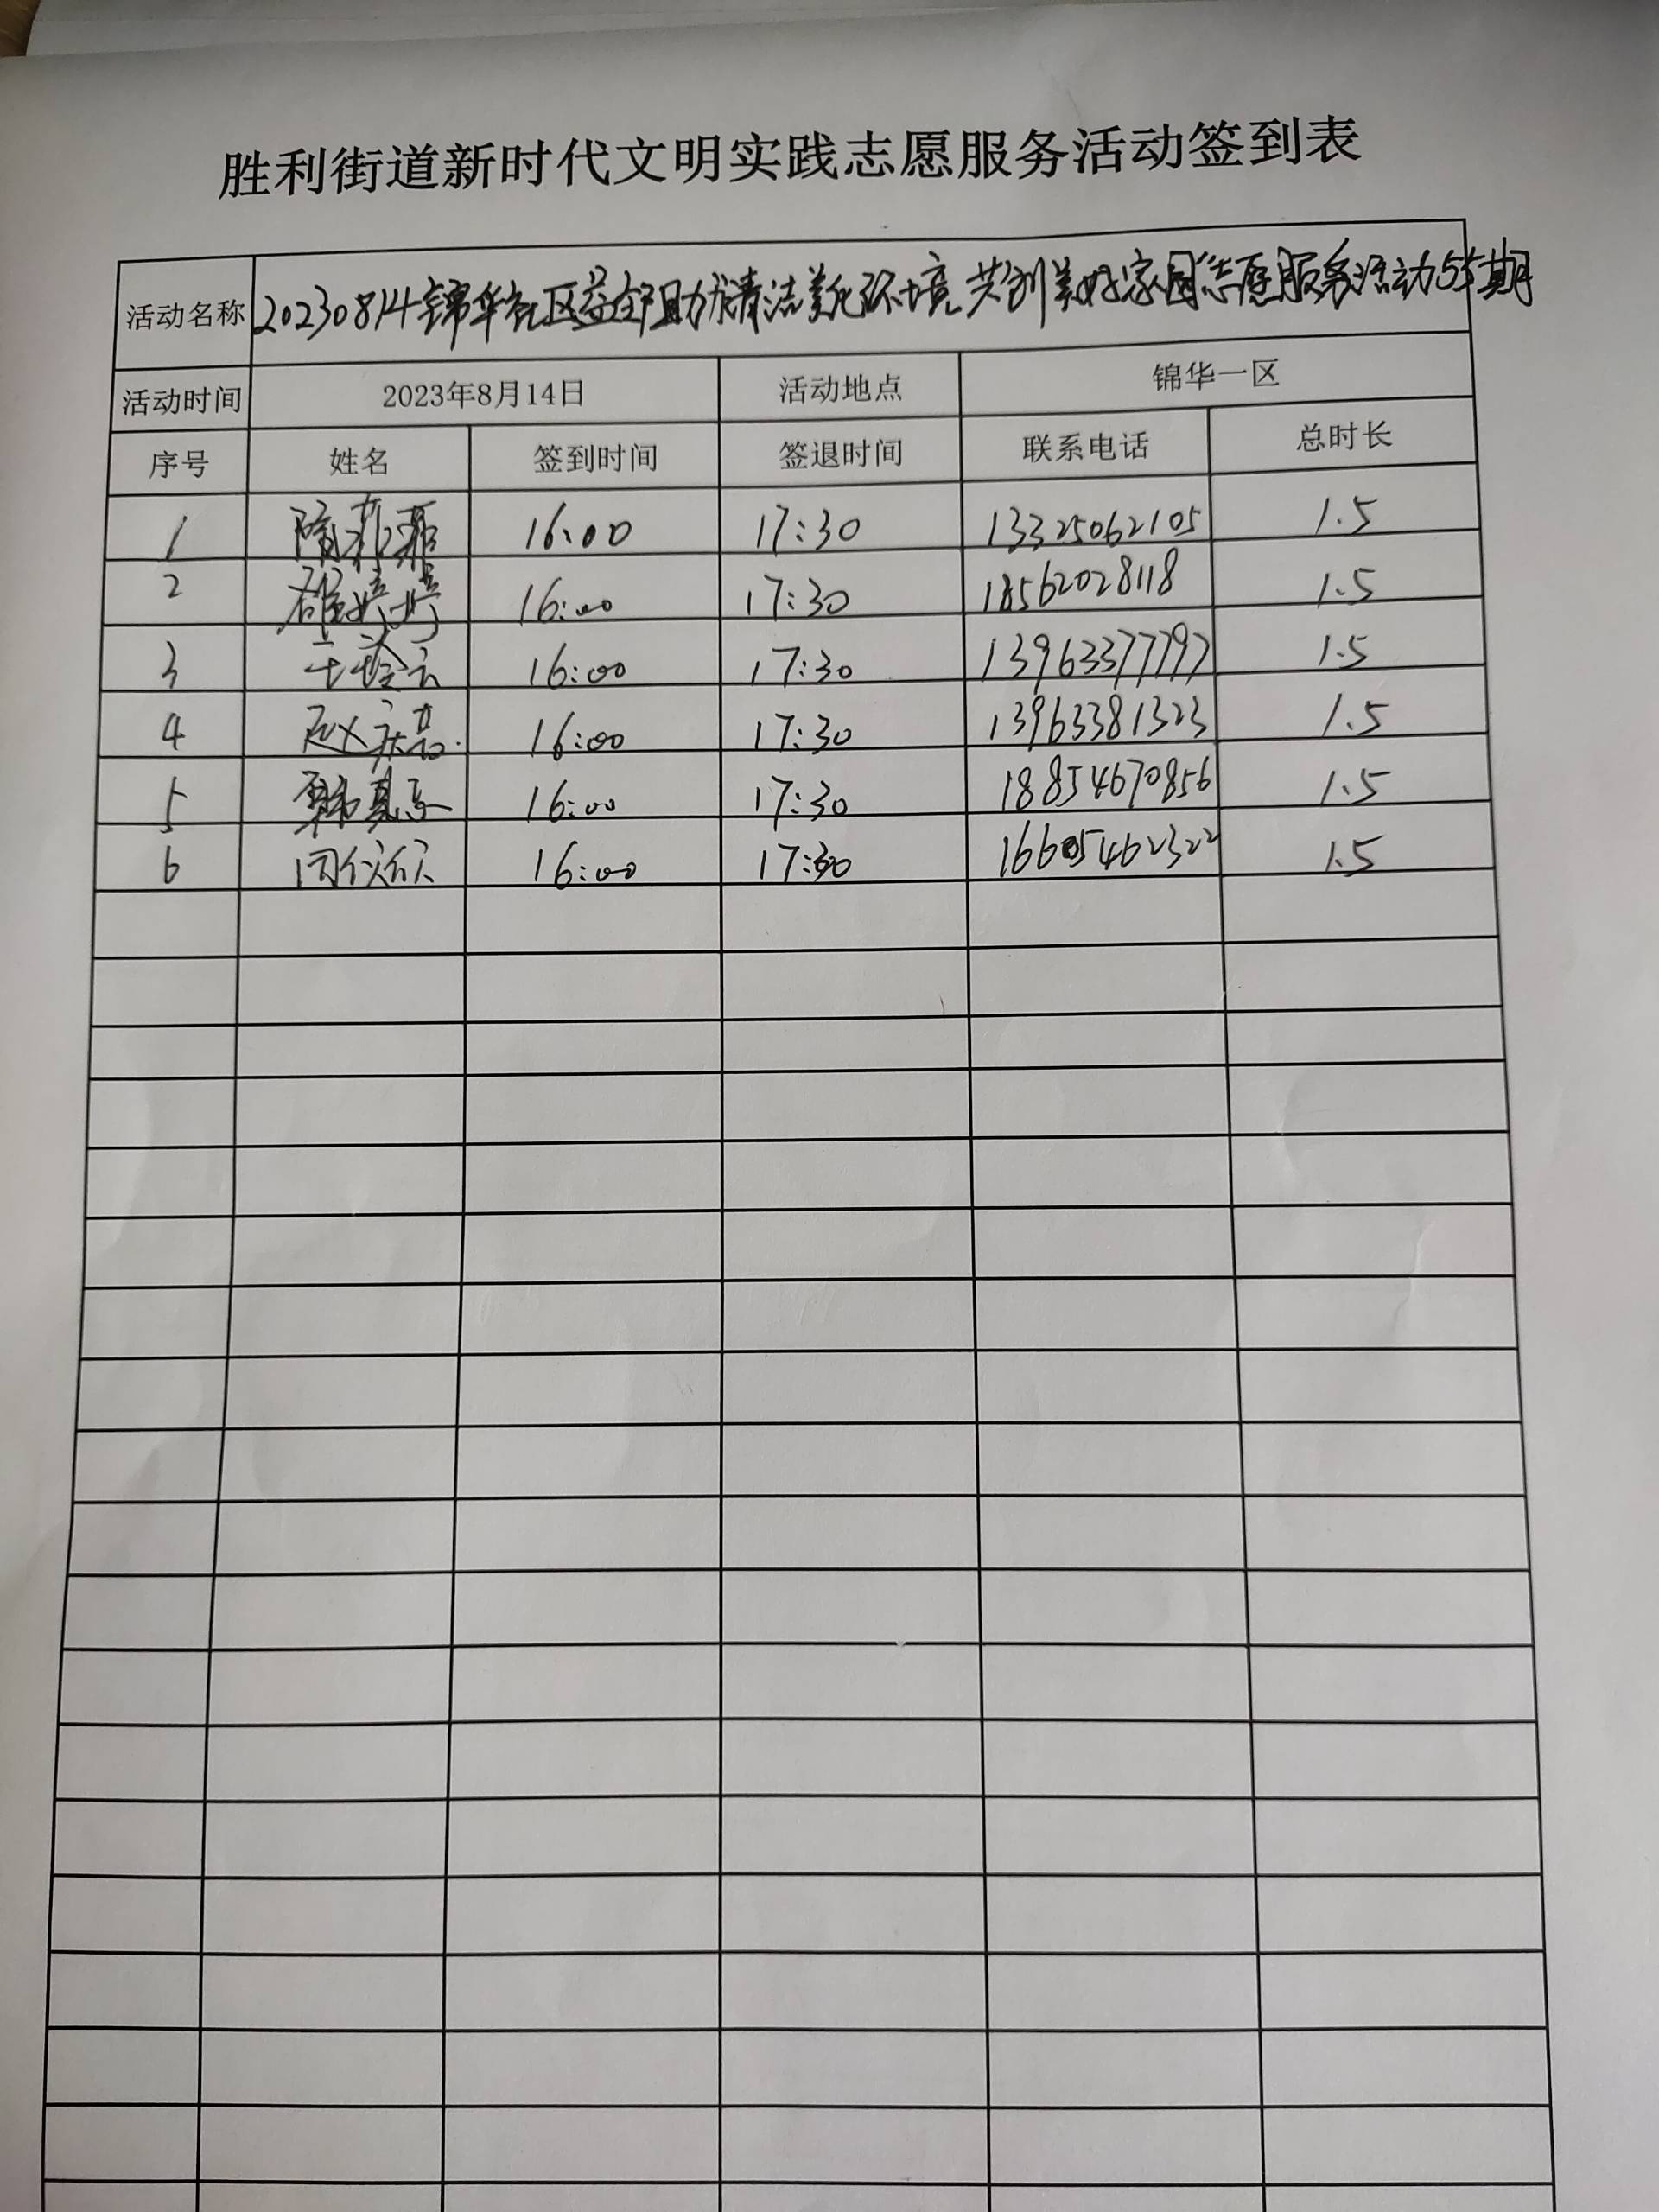 胜利街道新时代文明实践志愿服务活动签到表
活动名称 20230814锦华社区益企助力清洁美化环境共创美好家园志愿服务活动55期
活动时间 2023年8月14日 活动地点 锦华一区
序号 姓名 签到时间 签退时间 联系电话 总时长
1 隋菲菲 16:00 17:30 13325062105 1.5
2 薛婷婷 16:00 17:30 18562028118 1.5
3 16:00 17:30 13963377797 1.5
4 赵庆 16:00 17:30 13963381323 1.5
5 韩真真 16:00 17:30 18854670856 1.5
6 闵 16:00 17:30 16605462322 1.5